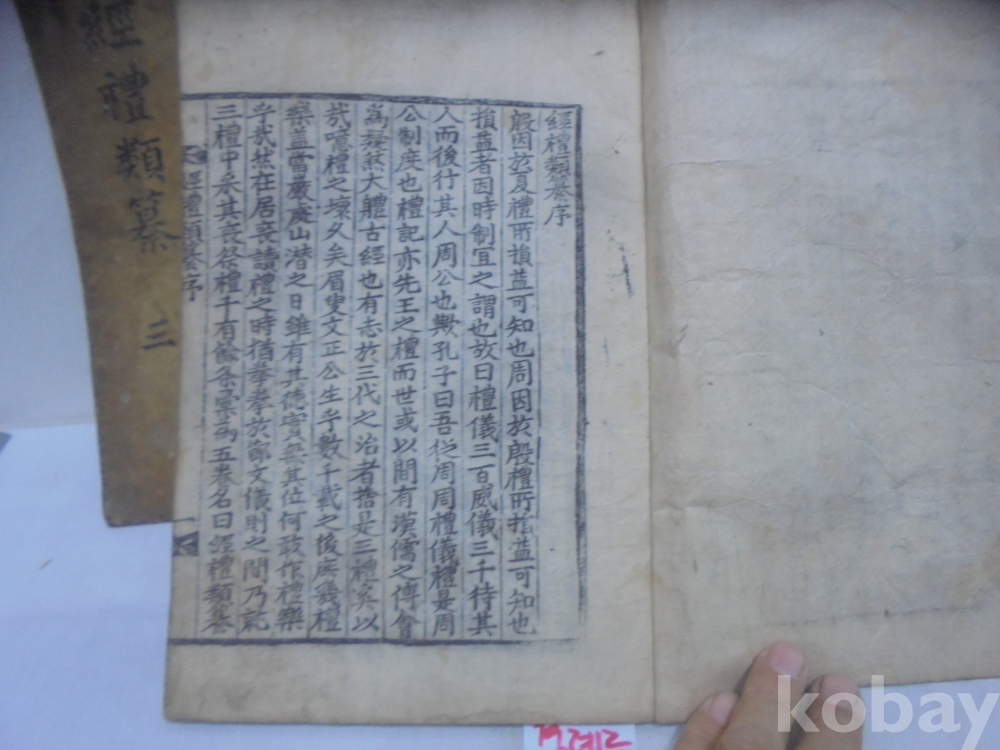 經禮類纂序
殷因於夏禮所損益可知也周因於殷禮所損益可知也
損益者因時制宜之謂也故曰禮儀三百威儀三千待其
人而後行其人周公也歟孔子曰吾從周周禮儀禮是周
公制度也禮記亦先王之禮而世或以間有漢儒之傅會
為疑然大軆古經也有志於三代之治者捨是三禮奚以
哉噫禮之壞久矣眉叟文正公生乎數千載之後庶幾禮
樂盖當嚴廬山潜之日雖有其德實無其位何敢作禮樂
乎哉然在居喪讀禮之時猶拳拳於節文儀則之間乃就
三禮中采其喪祭禮千有餘条彙為五卷名曰經禮類纂
經禮類纂序
一
經禮類纂 三
kobay